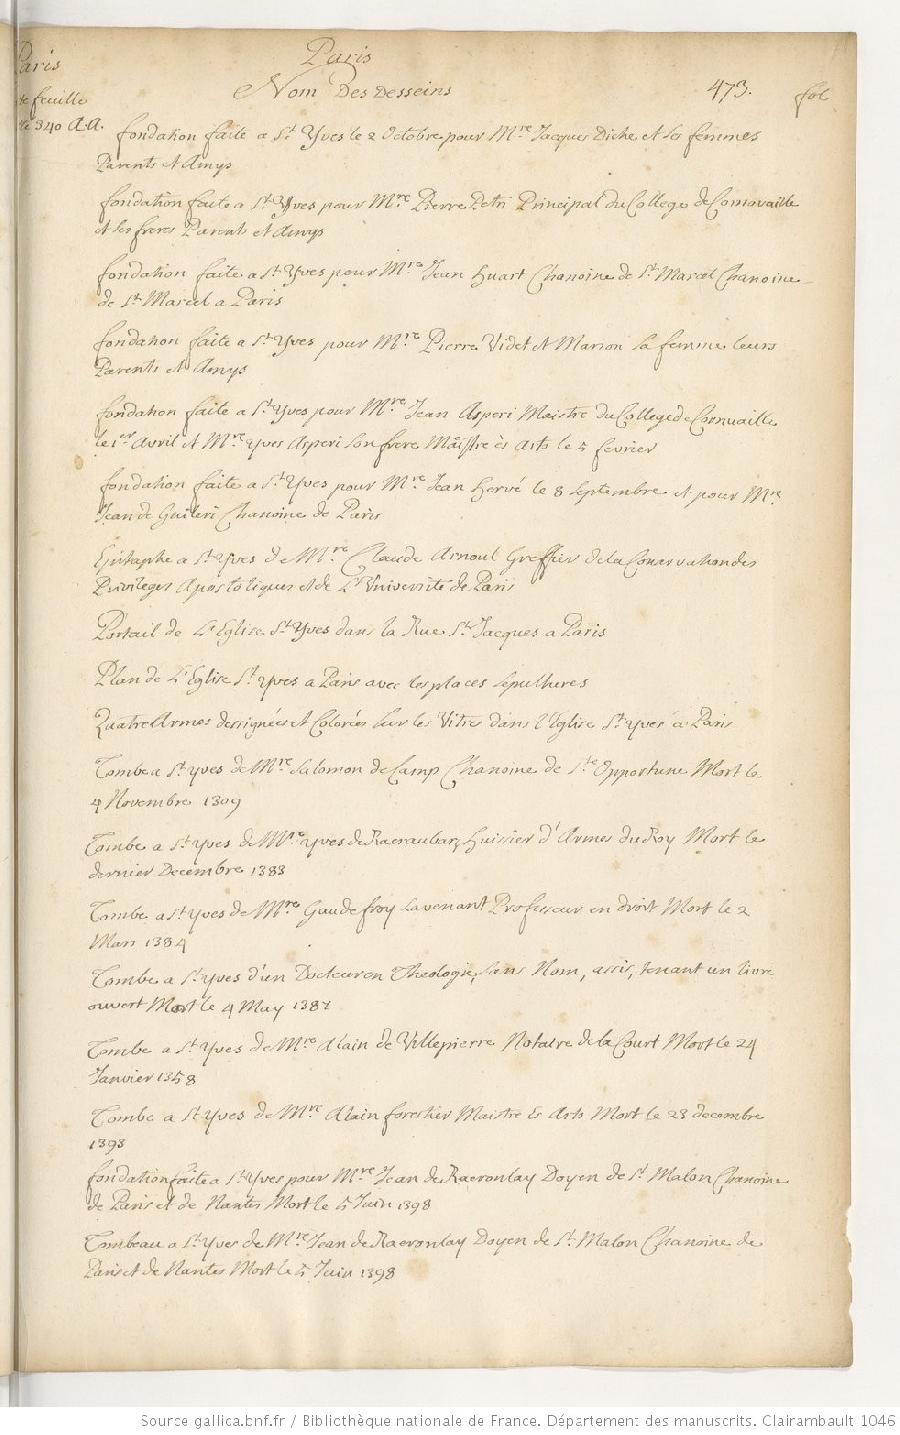 Paris
Paris
Nom Des Desseins
473.
fol
feuille
340 A.A.
fondation faite a St. Yves le 2 Octobre pour Mre. Jacques Diche et ses femmes
Parents et Amys
fondation faite a St. Yves pour Mre. Pierre Petri Principal du College de Cornouaille
et ses freres Parents et Amys
fondation faite a St. Yves pour Mre. Jean Huart Chanoine de St. Marcel Chanoine
de St. Marcel a Paris
fondation faite a St. Yves pour Mre. Pierre Videt et Marion sa femme leurs
Parents et Amys
fondation faite a St. Yves pour Mre. Jean Asperi Maistre du College de Cornuaille
le 1er. Avril et Mre. Yves Asperi Son frere Maistre ès Arts le 5 fevrier
fondation faite a St. Yves pour Mre. Jean Hervé le 8 Septembre et pour Mre
Jean de Guileri Chanoine de Paris
Epitaphe a St. Yves de Mre. Claude Arnoul Greffier de la Conservation des
Privileges Apostoliques et de L'Université de Paris
Portail de L'Eglise St. Yves dans la Rue St. Jacques a Paris
Plan de L'Eglise St. Yves a Paris avec les places Sepultures
Quatre Armes designées et Colorées Sur les Vitres dans l'Eglise St. Yves a Paris
Tombe a St. Yves de Mre. Salomon de Camp Chanoine de Ste Opportune Mort le
4 Novembre 1309
Tombe a St. Yves de Mre. Yves de Raeraubarz Huissier d'Armes du Roy Mort le
dernier Decembre 1383
Tombe a St. Yves de Mre. Gaudefroy Savenant Professeur en droit Mort le 2
Mars 1384
Tombe a St. Yves d'un Docteur en Theologie, Sans Nom, assis, tenant un livre
ouvert Mort le 4 May 1387
Tombe a St. Yves de Mre. Alain de Villepierre Notaire de la Court Mort le 24
Janvier 1358
Tombe a St. Yves de Mre. Alain forestier Maistre ès Arts Mort le 23 decembre
1393
fondation faite a St. Yves pour Mre. Jean de Raeronlay Doyen de St. Malon Chanoine
de Paris et de Nantes Mort le 5 Juin 1398
Tombeau a St. Yves de Mre. Jean de Raeronlay Doyen de St. Malon Chanoine de
Paris et de Nantes Mort le 5 Juin 1398
Source gallica.bnf.fr / Bibliothèque nationale de France. Département des manuscrits. Clairambault 1046